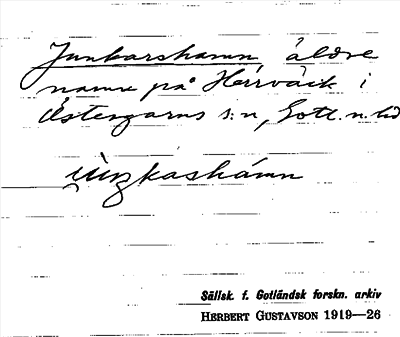 Junkarshamn äldre
namn på Herrvik i
Östergarns s:n, Gotl. n. hd
Sällsk. f. Gotländsk forskn. arkiv
HERBERT GUSTAVSON 1919—26